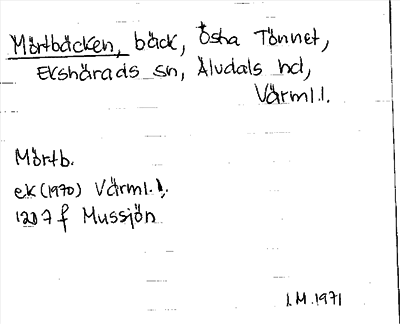 Mörtbäcken, bäck, Östra Tönnet,
Ekshärads sn, Älvdals hd,
Värml.l.
Mörtb.
ek (1970) Värml.l.
12D7f Mussjön
I.M.1971